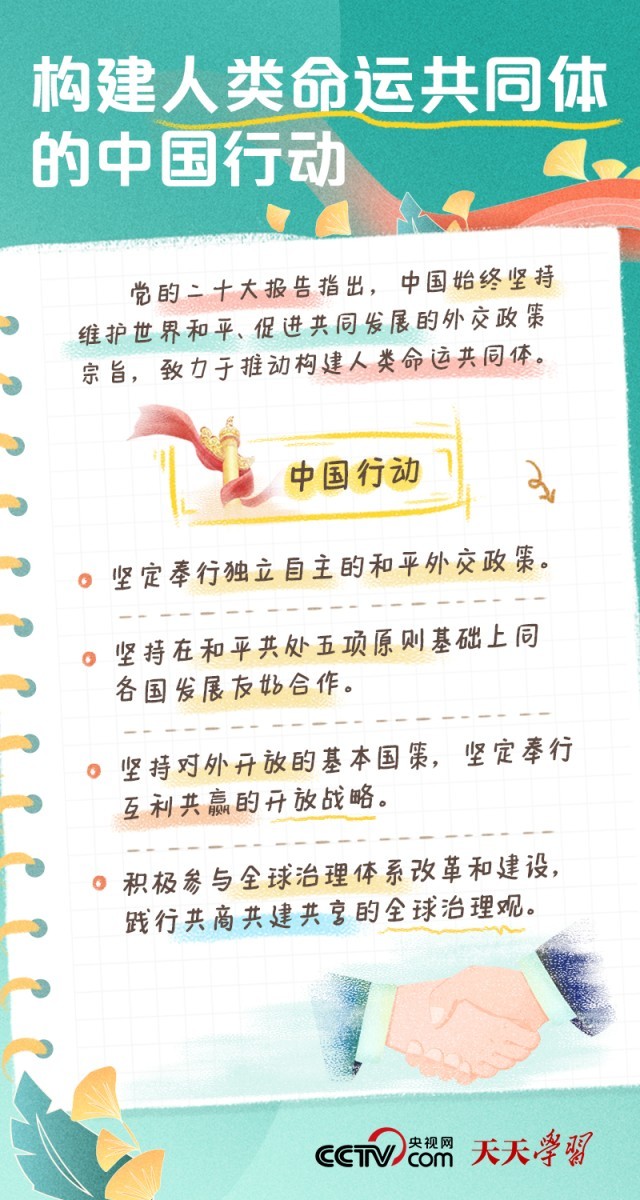 构建人类命运共同体
的中国行动
党的二十大报告指出，中国始终坚持
维护世界和平、促进共同发展的外交政策
宗旨，致力于推动构建人类命运共同体。
中国行动
坚定奉行独立自主的和平外交政策。
坚持在和平共处五项原则基础上同
各国发展友好合作。
坚持对外开放的基本国策，坚定奉行
互利共赢的开放战略。
积极参与全球治理体系改革和建设，
践行共商共建共享的全球治理观。
CCTV央视网com 天天学習